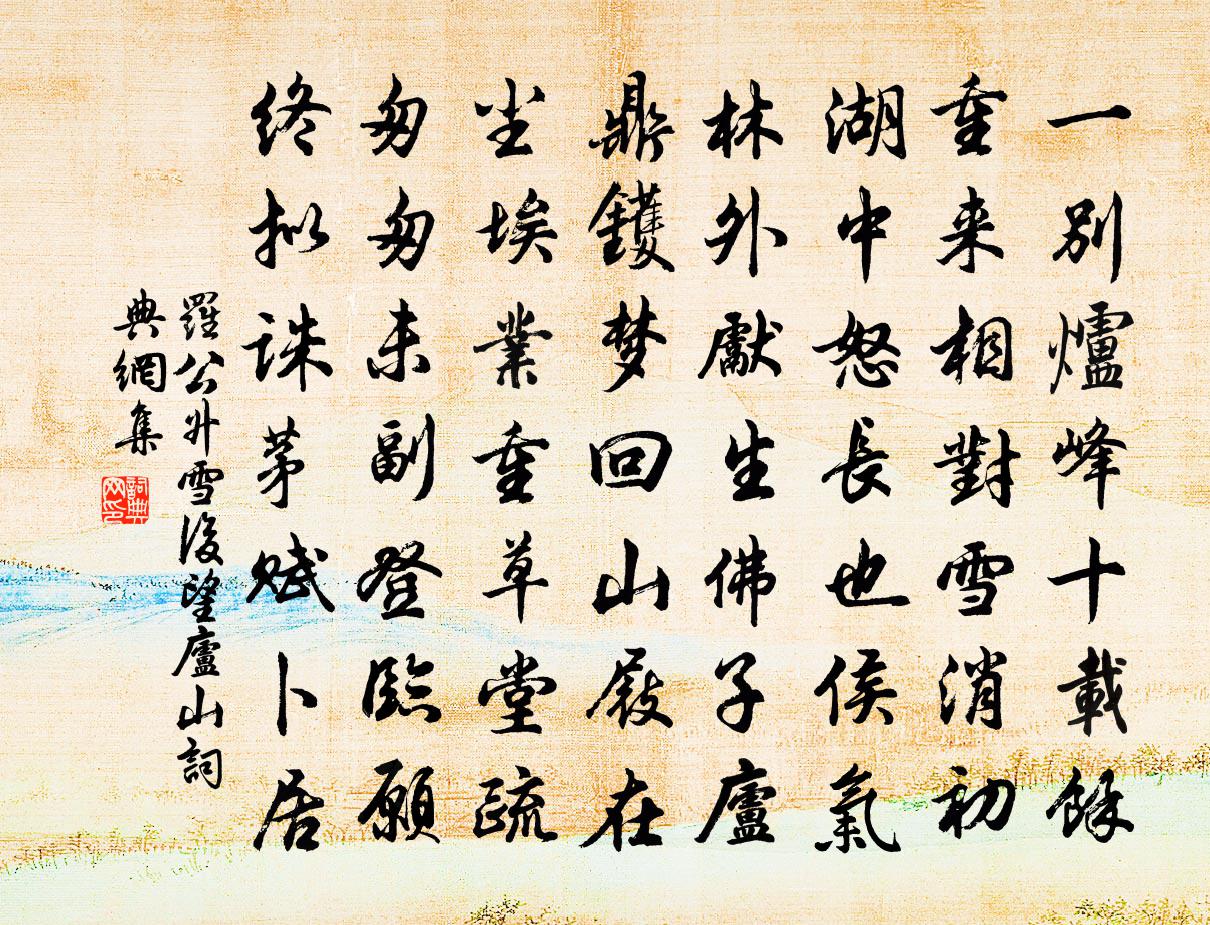 一別爐峰十載餘
重来相對雪消初
湖中怒長也侯氣
林外獻生佛子廬
鼎鑊梦回山屐在
尘埃業重草堂疏
匆匆未副登臨願
終拟誅茅賦卜居
羅公升雪後望廬山詞
典網集
詞典网印